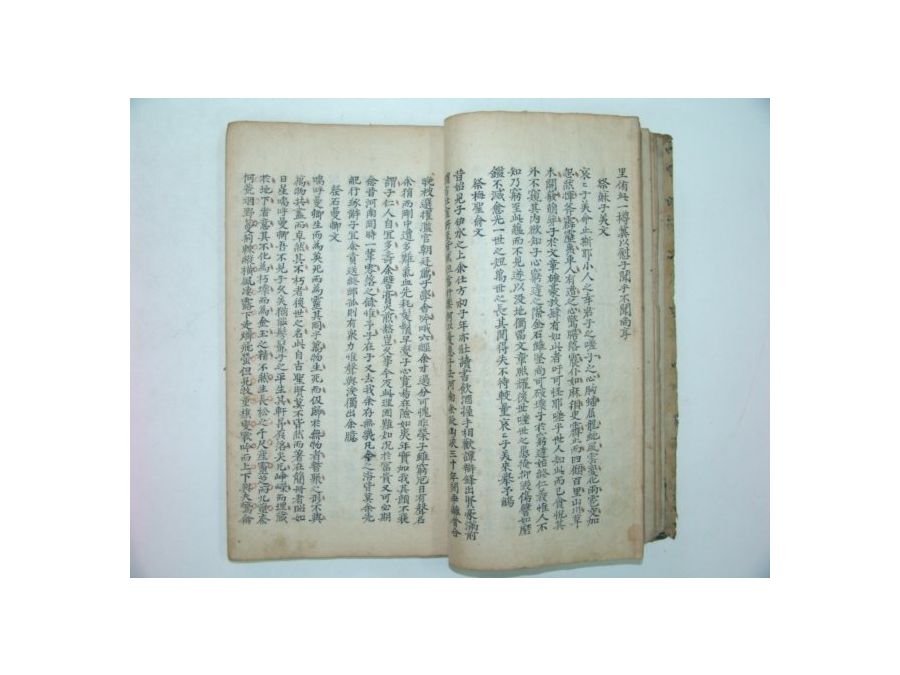 里侑此一樽冀以慰子聞乎不聞尚享
祭蘇子美文
哀〻子美命止斯耶小人之幸君子之嗟子之心胸蟠屈龍蛇風雲變化雨雹交加
忽然揮斧霹靂轟車人有遭之心驚膽落震仆如麻須臾霽止而四顧百里山川草
木開發萌芽子於文章雄豪放肆有如此者吁可怪耶嗟乎世人知此而已貪悅其
外不窺其內欲知子心窮達之際金石雖堅尚可破壞子於窮達始終仁義惟人不
知乃窮至此蘊而不見遂以沒地獨留文章照耀後世嗟世之愚掩抑毀傷譬如磨
鑑不滅愈光一世之短萬世之長其間得失不待較量哀〻子美來舉予觴
祭梅聖俞文
昔始見子伊水之上余仕方初子年亦壯讀書飲酒握手相歡譚辯鋒出賢豪滿前
謂言仕宦所至皆然但當行樂何以憂患子去河南余貶山峽三十年間乖離會合
晚被選擢濫官朝廷薦子學舍吟哦六經余才過分可愧非榮子雖窮厄日有聲名
余狷而剛中遭多難氣血先耗髮鬢早變子心寬易在險如夷年實加我其顏不衰
謂子仁人自宜多壽余譬膏火煎熬豈久事今反此理固難知況於富貴又可必期
念昔河南同時一輩零落之餘惟予子在子又去我余存無凡今之洛皆莫余先
紀行琢辭子宜余責送終卹孤則有衆力惟聲與淚獨出余臆
祭石曼卿文
嗚呼曼卿生而為英死而為靈其同乎萬物生死而復歸於無物者暫聚之形不與
萬物共盡而卓然其不朽者後世之名此自古聖賢莫不皆然而著在簡冊者昭如
日星嗚呼曼卿吾不見子久矣猶能髣髴子之平生其軒昂磊落突兀崢嶸而埋藏
於地下者意其不化為朽壤而為金玉之精不然生長松之千尺產靈芝而九莖奈
何荒烟野蔓荊棘縱橫風淒露下走燐飛螢但見牧童樵叟歌吟而上下與夫驚禽